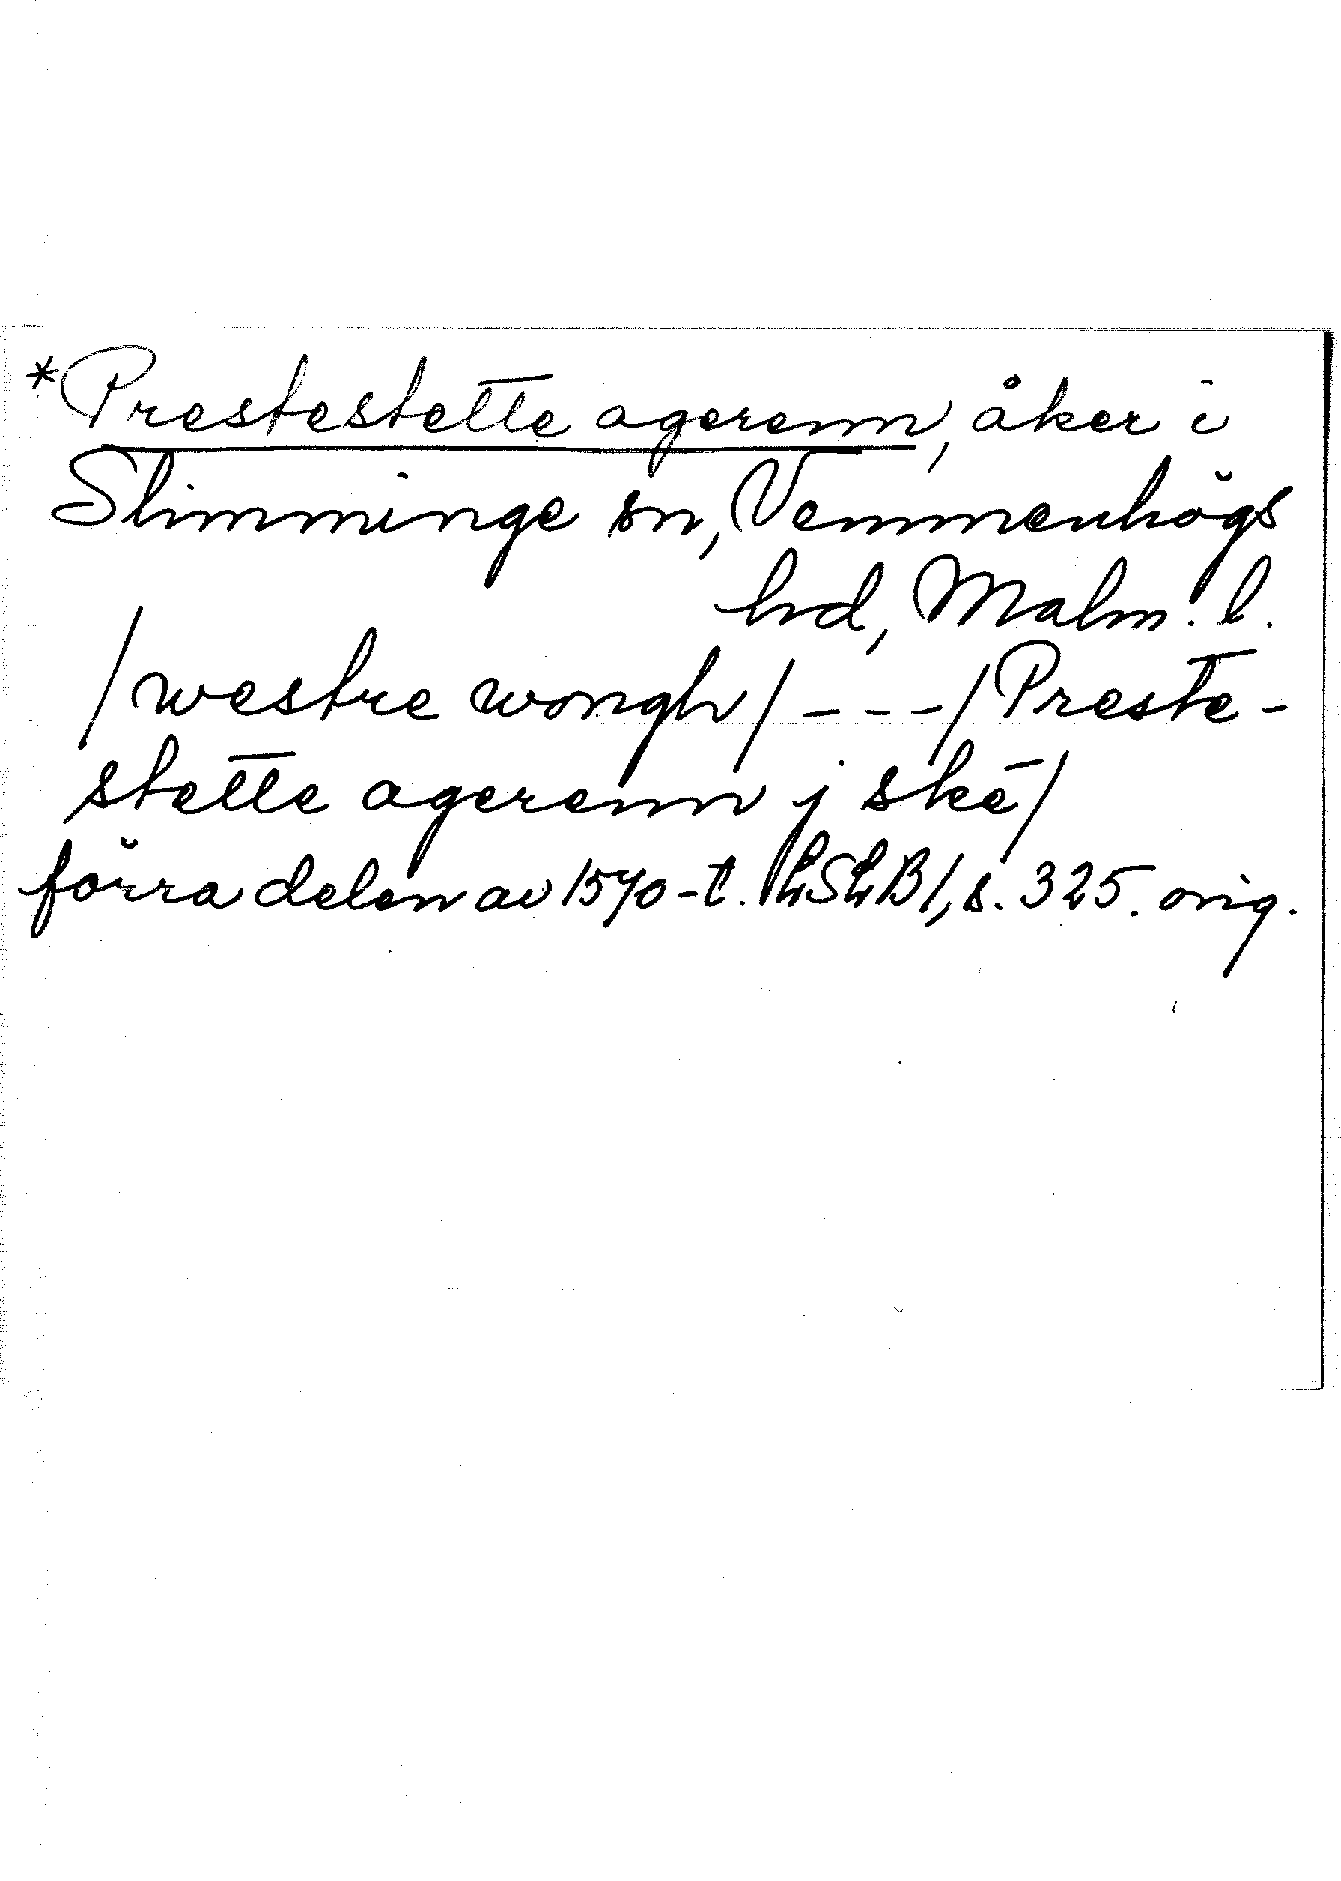 *Prestestette agerenn, åker i
Slimminge sn, Vemmenhögs
hd, Malm. l.
/westre wongh/ - - - /Preste-
stette agerenn j skē/
förra delen av 1570-t. LSLB1, s. 325. orig.